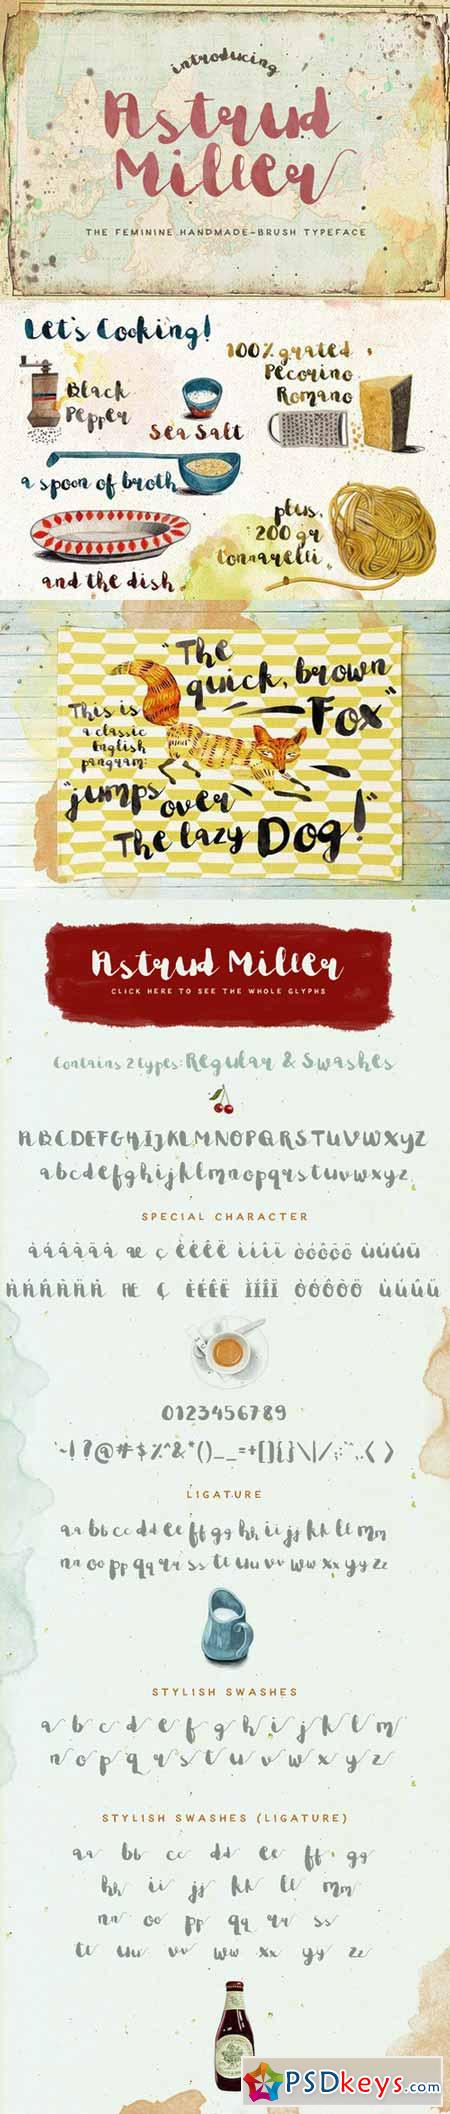 introducing
Astrud
Miller
THE FEMININE HANDMADE-BRUSH TYPEFACE
Let's Cooking!
100% grated
Pecorino
Romano
Black
Pepper
Sea Salt
a spoon of broth
plus,
200 gr
Tonnarelli
and the dish
"The
quick, brown
Fox"
This is
a classic
English
pangram:
"jumps
over
The lazy Dog!"
Astrud Miller
CLICK HERE TO SEE THE WHOLE GLYPHS
Contains 2 types: Regular & Swashes
ABCDEFGHIJKLMNOPQRSTUVWXYZ
abcdefghijklmnopqrstuvwxyz
SPECIAL CHARACTER
0123456789
LIGATURE
aa bb cc dd ee ff gg hh ii jj kk ll mm
nn oo pp qq rr ss tt uu vv ww xx yy zz
STYLISH SWASHES
a b c d e f g h i j k l m
n o p q r s t u v w x y z
STYLISH SWASHES (LIGATURE)
aa bb cc dd ee ff gg
hh ii jj kk ll mm
nn oo pp qq rr ss
tt uu vv ww xx yy zz
PSDkeys.com